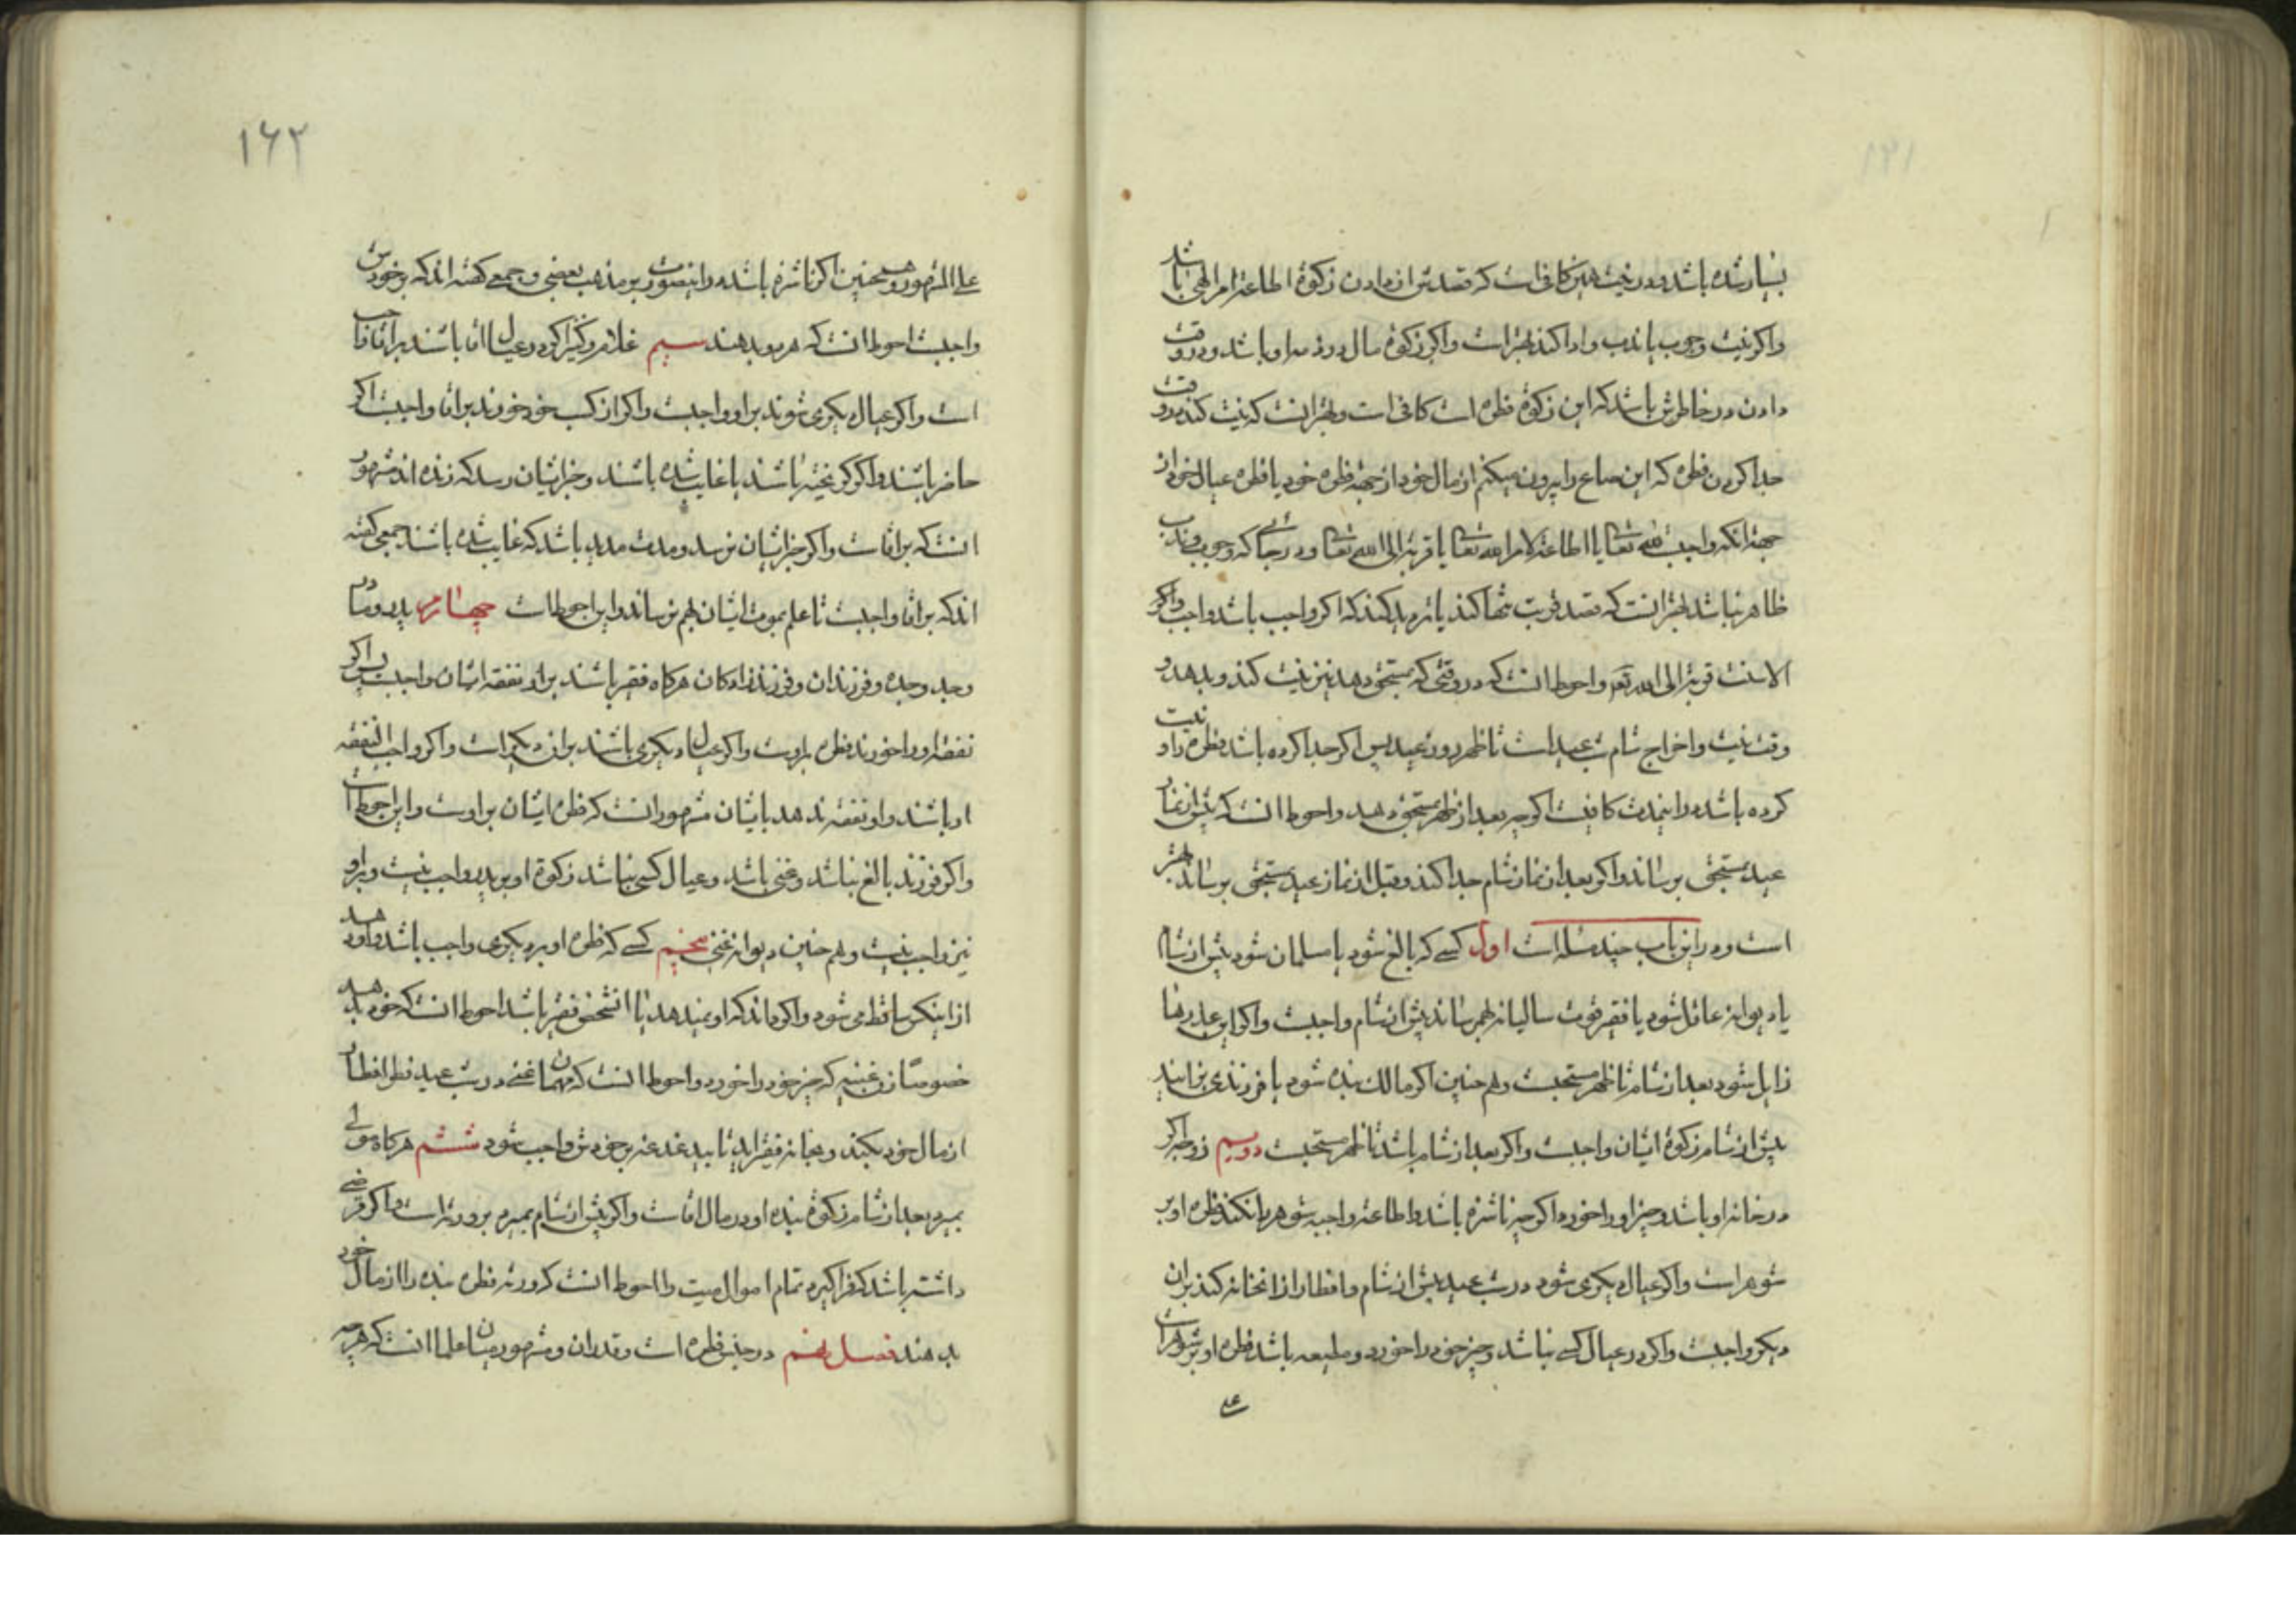 بسیار شده باشد و در نیت همین کافی است که قصدش از دادن زکوة اطاعة امر الهی باشد
و اگر نیت وجوب یا ندب و ادا کند بهتر است و اگر زکوة مال در ذمه او باشد و در وقت
دادن در خاطرش باشد که این زکوة فطره است کافی است و بهتر انست که نیت کند در وقت
جدا کردن فطره که این صاع را بیرون میکنم از مال خود از جهة فطره خود یا فطره عیال خود از
جهة انکه واجبست لله تعالی یا اطاعة لامر الله تعالی یا قربة الی الله تعالی و در جائی که وجوب و ندب
ظاهر نباشد بهتر انست که قصد قربت تنها کند یا تردید کند که اگر واجب باشد واجب و اگر
الا سنت قربة الی الله تعه و احوط انست که در وقتی که بمستحق دهد نیز نیت کند و بدهد و
وقت نیت و اخراج شام شب عید است تا ظهر روز عید پس اگر جدا کرده باشد فطره را و نیت
کرده باشد در اینمدت کافیست اگر چه بعد از ظهر بمستحق دهد و احوط انست که پیش از نماز
عید بمستحق برساند و اگر بعد از نماز شام جدا کند و قبل از نماز عید بمستحق برساند بهتر
است و در این باب چند مسئله است اول کسی که بالغ شود یا مسلمان شود پیش از شام
یا دیوانه عاقل شود یا فقیر قوت سالیانه بهم رساند پیش از شام واجبست و اگر این عذرها
زایل شود بعد از شام تا ظهر مستحبست و هم چنین اگر مالک بنده شود یا فرزندی بزاید
پیش از شام زکوة ایشان واجبست و اگر بعد از شام باشد تا ظهر مستحبست دویم زوجه اگر
در خانه او باشد و چیز او را خورد اگر چه ناشزه باشد و اطاعة واجبه شوهر را نکند فطره او بر
شوهر است و اگر عیال دیگری شود در شب عید پیش از شام و افطار از انخانه کند بر ان
دیگر واجبست و اگر در عیال کسی نباشد و چیز خود را خورد و مطیعه باشد فطره او بر شوهر است
علی
۱۶۲
علی المشهور و همچنین اگر ناشزه باشد در اینصورت بر مذهب بعضی و جمعی گفته اند که بر خودش
واجبست احوط انست که هر دو بدهند سیم غلام و کنیز اگر در عیال اقا باشند بر اقا واجب
است و اگر عیال دیگری شوند بر او واجبست و اگر از کسب خود خورند بر اقا واجبست اگر
حاضر باشند و اگر گریخته باشند یا غایب شده باشند و خبر ایشان رسد که زنده اند مشهور
انست که بر اقاست و اگر خبر ایشان نرسد و مدت مدید باشد که غایب شده باشند جمعی گفته
اند که بر اقا واجبست تا علم بموت ایشان بهم نرساند و این احوط است چهارم پدر و مادر
و جد و جده و فرزندان و فرزند زادگان هرگاه فقیر باشند بر او نفقه ایشان واجبست پس اگر
نفقه او را خورند فطره بر اوست و اگر عیال دیگری باشند بر ان دیگر است و اگر واجب النفقه
او باشند و او نفقه ندهد بایشان مشهور انست که فطره ایشان بر اوست و این احوط است
و اگر فرزند بالغ نباشد و غنی باشد و عیال کسی نباشد زکوة او بر پدر واجب نیست و بر او
نیز واجب نیست و هم چنین دیوانه غنی پنجم کسی که فطره او بر دیگری واجب باشد و او دهد
از اینکس ساقط می شود و اگر داند که او نمیدهد یا انشخص فقیر باشد احوط انست که خود بدهد
خصوصا زن غنیه که چیز خود را خورد و احوط انست که مهمان غنی در شب عید فطر افطار
از مال خود بکند و بخانه فقیر اید تا بیدغدغه بر خودش واجب شود ششم هرگاه مولی
بمیرد بعد از شام زکوة بنده او در مال اقاست و اگر پیش از شام بمیرد بر ورثه است و اگر قرضی
داشته باشد که فرا گیرد تمام اموال میت را احوط انست که ورثه فطره بنده را از مال خود
بدهند فصل پنجم در جنس فطره است و قدر ان و مشهور میان علما انست که هر چه